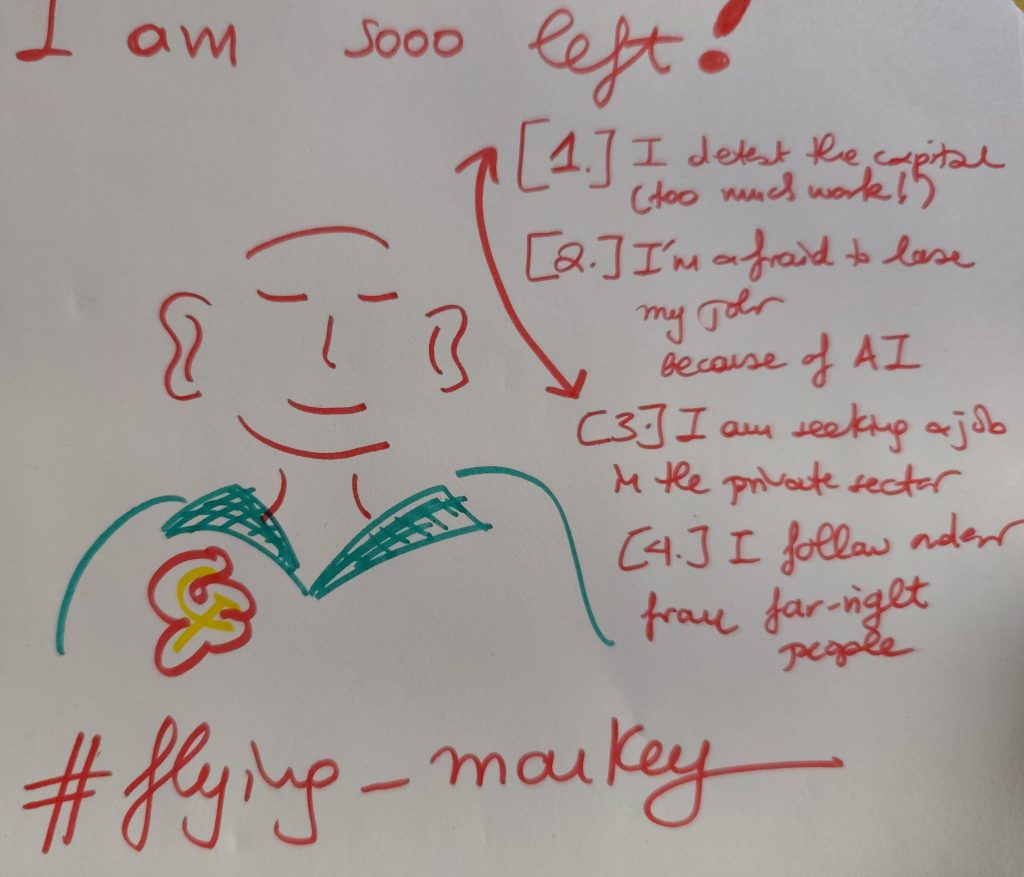 I am sooo left!
[1.] I detest the capital
(too much work!)
[2.] I'm afraid to lose
my job
because of AI
[3.] I am seeking a job
in the private sector
[4.] I follow orders
from far-right
people
#flying_monkey